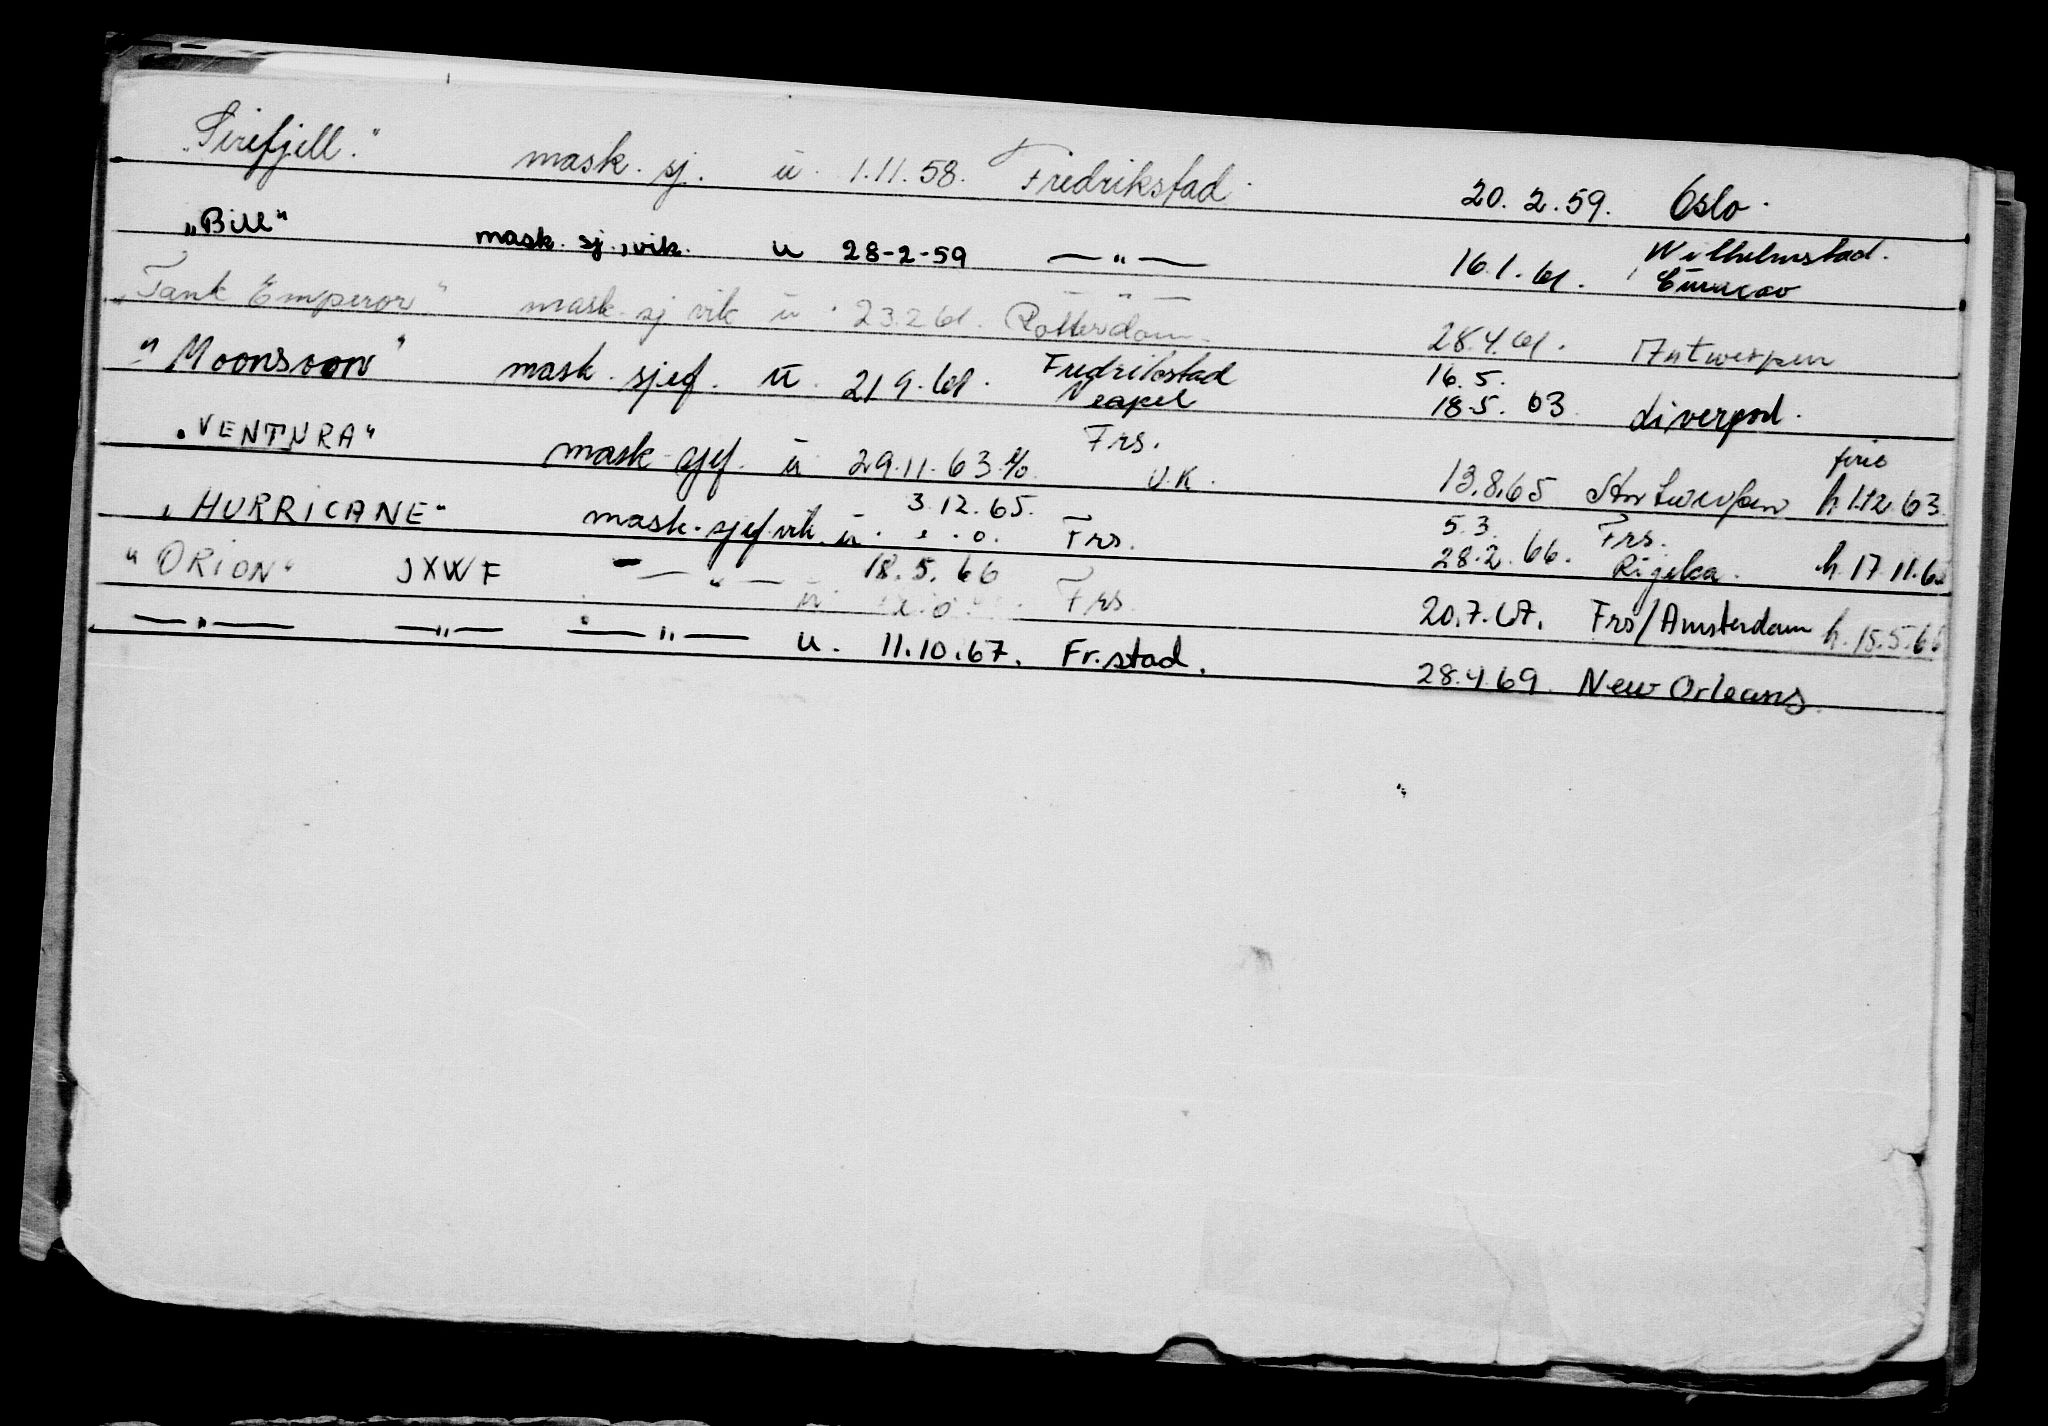 "Sirefjell." mask. sj. u. 1.11.58. Fredrikstad. 20.2.59. Oslo.
"Bill" mask. sj., vik. u 28-2-59 —"— 16.1.61. Wilhelmstad. Curacao
"Tank Emperor" mask. sj vik u. 23.2 61. Rotterdam. 28.4.61. Antwerpen
"Moonsoon" mask. sjef. u. 21 9.61. Fredrikstad Neapel 16.5. 18.5. 63 Liverpool.
"VENTURA" mask sjef. u 29.11.63 Frs. U.K. 13.8.65 Antwerpen h 1.12.63.
"HURRICANE" mask. sjef vik. u. 3.12.65. e.o. Frs. 5.3. 28.2.66. Frs. Rijeka. h. 17.11.65
"ORION" JXWF —"— u 18.5.66 e.o. Frs. 20.7.67. Frs/Amsterdam h. 15.5.66
—"— —"— —"— u. 11.10.67. Fr.stad. 28.4.69. New Orleans.